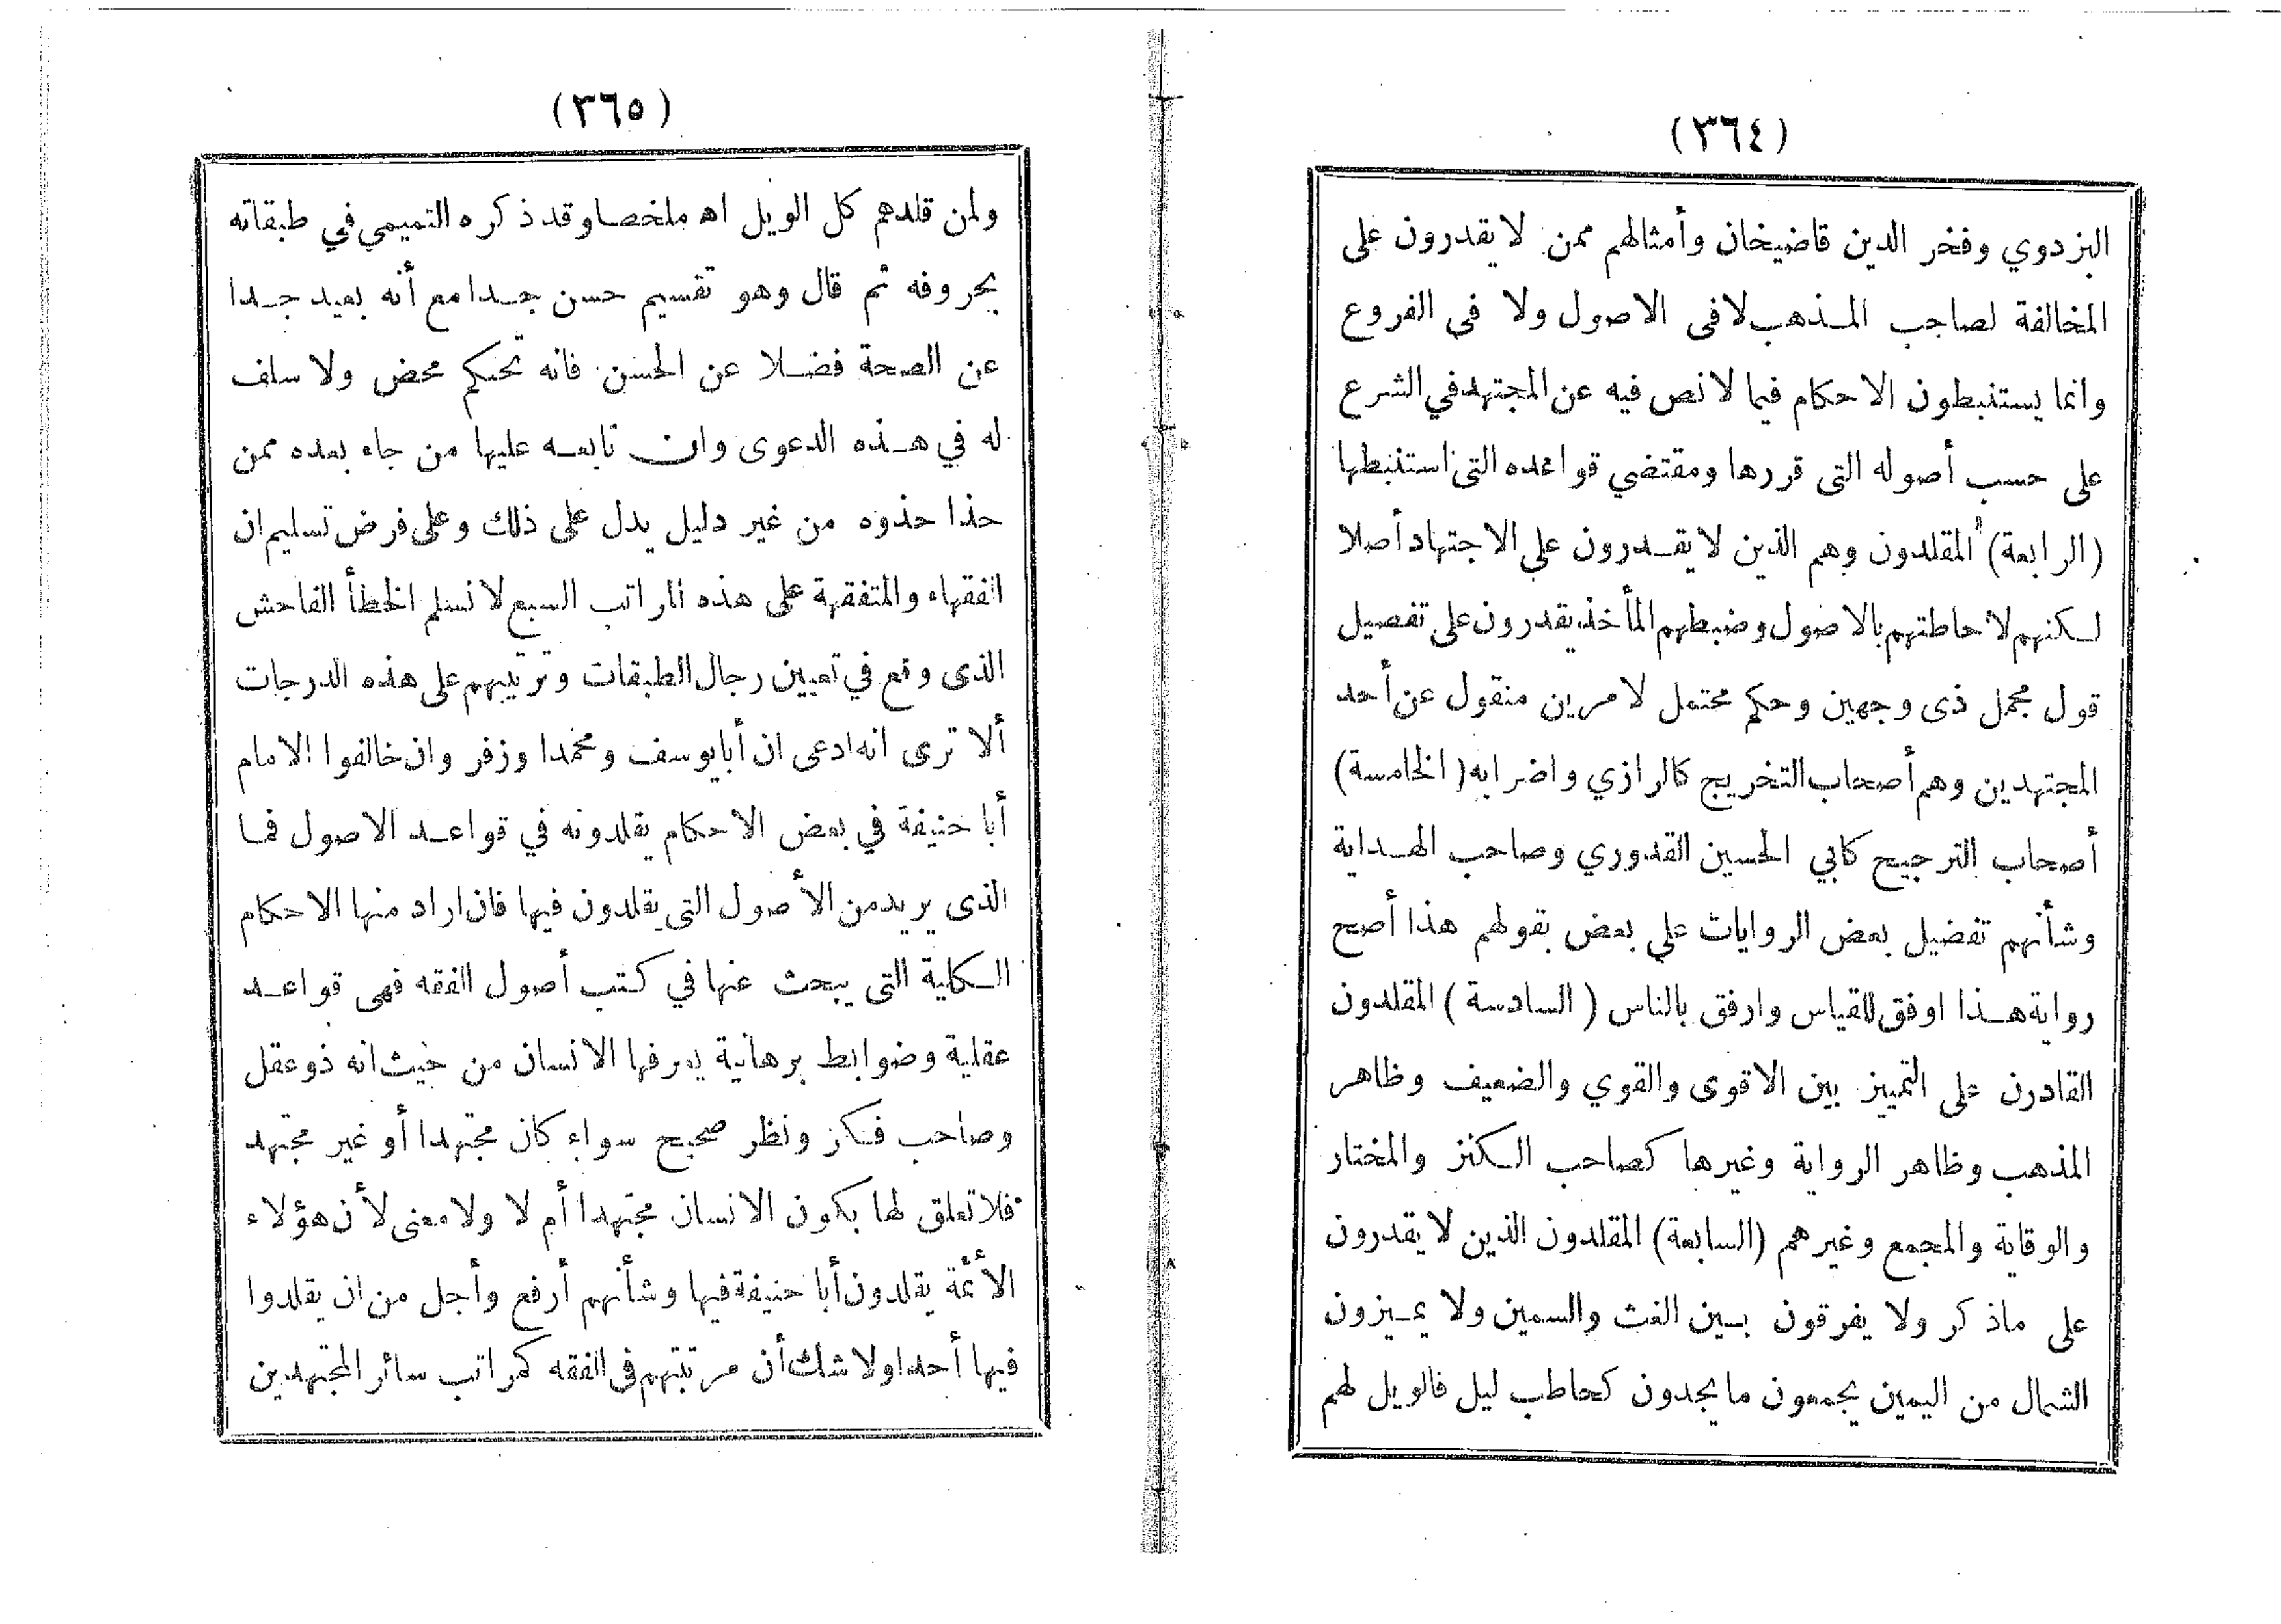 (٣٦٤)
البزدوي وفخر الدين قاضيخان وأمثالهم ممن لا يقدرون على
المخالفة لصاحب المذهب لا فى الاصول ولا فى الفروع
وانما يستنبطون الاحكام فيما لا نص فيه عن المجتهد في الشرع
على حسب أصوله التى قررها ومقتضي قواعده التى استنبطها
(الرابعة) المقلدون وهم الذين لا يقدرون على الاجتهاد أصلا
لكنهم لاحاطتهم بالاصول وضبطهم المأخذ يقدرون على تفصيل
قول مجمل ذى وجهين وحكم محتمل لامرين منقول عن أحد
المجتهدين وهم أصحاب التخريج كالرازي واضرابه (الخامسة)
أصحاب الترجيح كابي الحسين القدوري وصاحب الهداية
وشأنهم تفضيل بعض الروايات على بعض بقولهم هذا أصح
رواية هذا اوفق للقياس وارفق بالناس (السادسة) المقلدون
القادرن على التمييز بين الاقوى والقوي والضعيف وظاهر
المذهب وظاهر الرواية وغيرها كصاحب الكنز والمختار
والوقاية والمجمع وغيرهم (السابعة) المقلدون الذين لا يقدرون
على ماذكر ولا يفرقون بين الغث والسمين ولا يميزون
الشمال من اليمين يجمعون ما يجدون كحاطب ليل فالويل لهم
(٣٦٥)
ولمن قلدهم كل الويل اه ملخصا وقد ذكره التميمي في طبقاته
بحروفه ثم قال وهو تقسيم حسن جدا مع أنه بعيد جدا
عن الصحة فضلا عن الحسن فانه تحكم محض ولا سلف
له في هذه الدعوى وان تابعه عليها من جاء بعده ممن
حذا حذوه من غير دليل يدل على ذلك وعلى فرض تسليم ان
الفقهاء والمتفقهة على هذه المراتب السبع لا نسلم الخطأ الفاحش
الذى وقع في تعيين رجال الطبقات وترتيبهم على هذه الدرجات
ألا ترى انه ادعى ان أبا يوسف ومحمدا وزفر وان خالفوا الامام
أبا حنيفة في بعض الاحكام يقلدونه في قواعد الاصول فما
الذى يريد من الأصول التى يقلدون فيها فان اراد منها الاحكام
الكلية التى يبحث عنها في كتب أصول الفقه فهى قواعد
عقلية وضوابط برهانية يعرفها الانسان من حيث انه ذو عقل
وصاحب فكر ونظر صحيح سواء كان مجتهدا أو غير مجتهد
فلا تعلق لها بكون الانسان مجتهدا أم لا ولا معنى لأن هؤلاء
الأئمة يقلدون أبا حنيفة فيها وشأنهم أرفع وأجل من ان يقلدوا
فيها أحدا ولا شك أن مرتبتهم فى الفقه كمراتب سائر المجتهدين